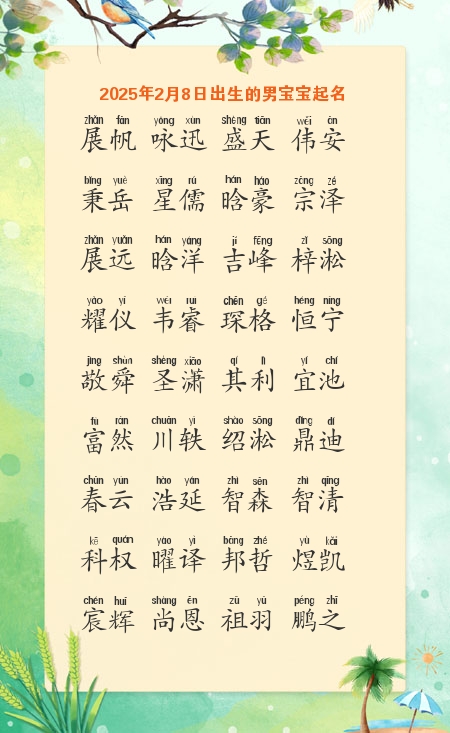 2025年2月8日出生的男宝宝起名
zhǎn fān yǒng xùn shèng tiān wěi ān
展帆 咏迅 盛天 伟安
bǐng yuè xīng rú hán háo zōng zé
秉岳 星儒 晗豪 宗泽
zhǎn yuǎn hán yáng jí fēng zǐ sōng
展远 晗洋 吉峰 梓淞
yào yí wéi ruì chēn gé héng níng
耀仪 韦睿 琛格 恒宁
jìng shùn shèng xiāo qí lì yí chí
敬舜 圣潇 其利 宜池
fù rán chuān yì shào sōng dǐng dí
富然 川轶 绍淞 鼎迪
chūn yún hào yán zhì sēn zhì qīng
春云 浩延 智森 智清
kē quán yào yì bāng zhé yù kǎi
科权 曜译 邦哲 煜凯
chén huī shàng ēn zǔ yǔ péng zhī
宸辉 尚恩 祖羽 鹏之